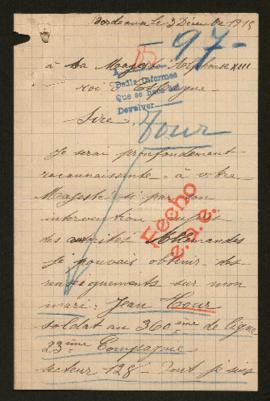 Bordeaux Le 3 Décembre 1915
97-
à Sa Majesté Alphonse XIII
roi d'Espagne
Pedir Informes
Que se hace sin
Devolver
Sire
Tour
Je serai profondément
reconnaissante à votre
Majesté si par son
intervention auprès
des autorités Allemandes
je pouvais obtenir des
renseignements sur mon
mari: Jean Tour
soldat au 360ème de ligne
23ème Compagnie
secteur 128 - dont je suis
Fecho